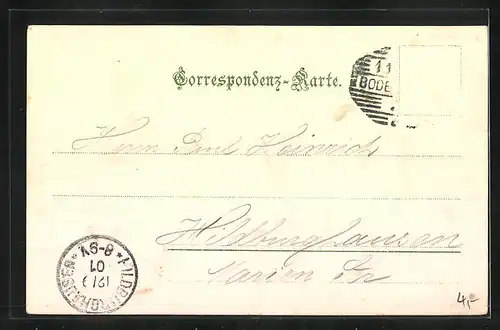 Correspondenz-Karte.
11
BODE
Herrn Paul Heinrich
Hildburghausen
Marien Str
HILDBURGHAUSEN
12/7
01
8-9V.
4,-